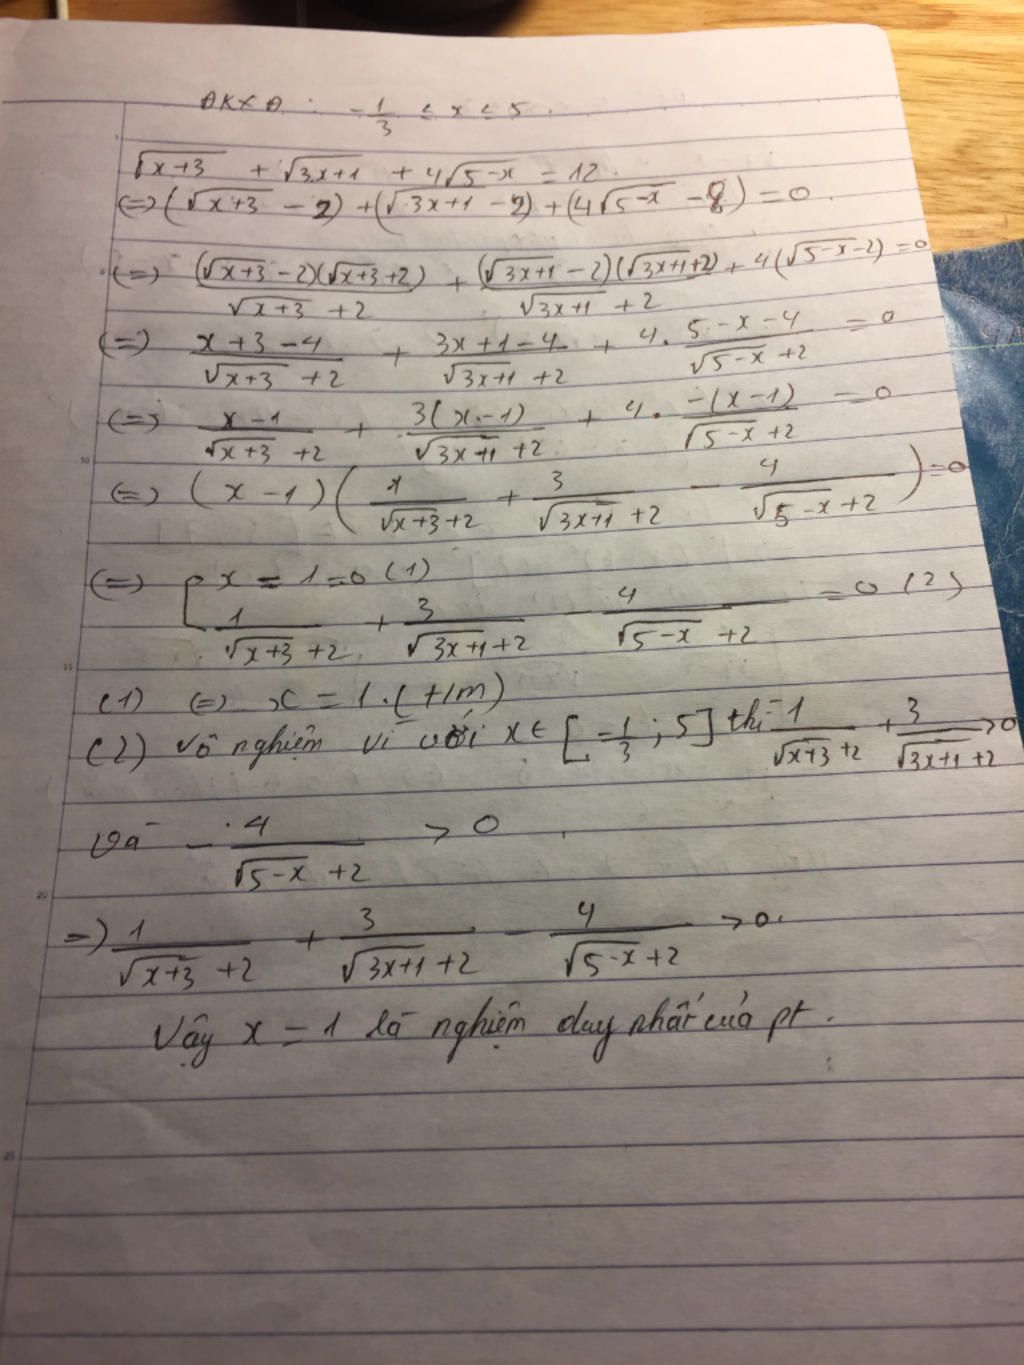 ĐKXĐ : -1/3 ≤ x ≤ 5.
√(x+3) + √(3x+1) + 4√(5-x) = 12.
(=) (√(x+3) - 2) + (√(3x+1) - 2) + (4√(5-x) - 8) = 0.
(=) (√(x+3) - 2)(√(x+3) + 2)/(√(x+3) + 2) + (√(3x+1) - 2)(√(3x+1) + 2)/(√(3x+1) + 2) + 4(√(5-x) - 2) = 0
(=) (x+3-4)/(√(x+3) + 2) + (3x+1-4)/(√(3x+1) + 2) + 4. (5-x-4)/(√(5-x) + 2) = 0
(=) (x-1)/(√(x+3) + 2) + 3(x-1)/(√(3x+1) + 2) + 4. -(x-1)/(√(5-x) + 2) = 0
(=) (x-1)(1/(√(x+3) + 2) + 3/(√(3x+1) + 2) - 4/(√(5-x) + 2)) = 0
(=) [ x = 1 = 0 (1)
1/(√(x+3) + 2) + 3/(√(3x+1) + 2) - 4/(√(5-x) + 2) = 0 (2)
(1) (=) x = 1. (t/m)
(2) vô nghiệm vì với x ∈ [-1/3 ; 5] thì 1/(√(x+3) + 2) + 3/(√(3x+1) + 2) > 0
và - 4/(√(5-x) + 2) > 0
=) 1/(√(x+3) + 2) + 3/(√(3x+1) + 2) - 4/(√(5-x) + 2) > 0.
Vậy x = 1 là nghiệm duy nhất của pt.